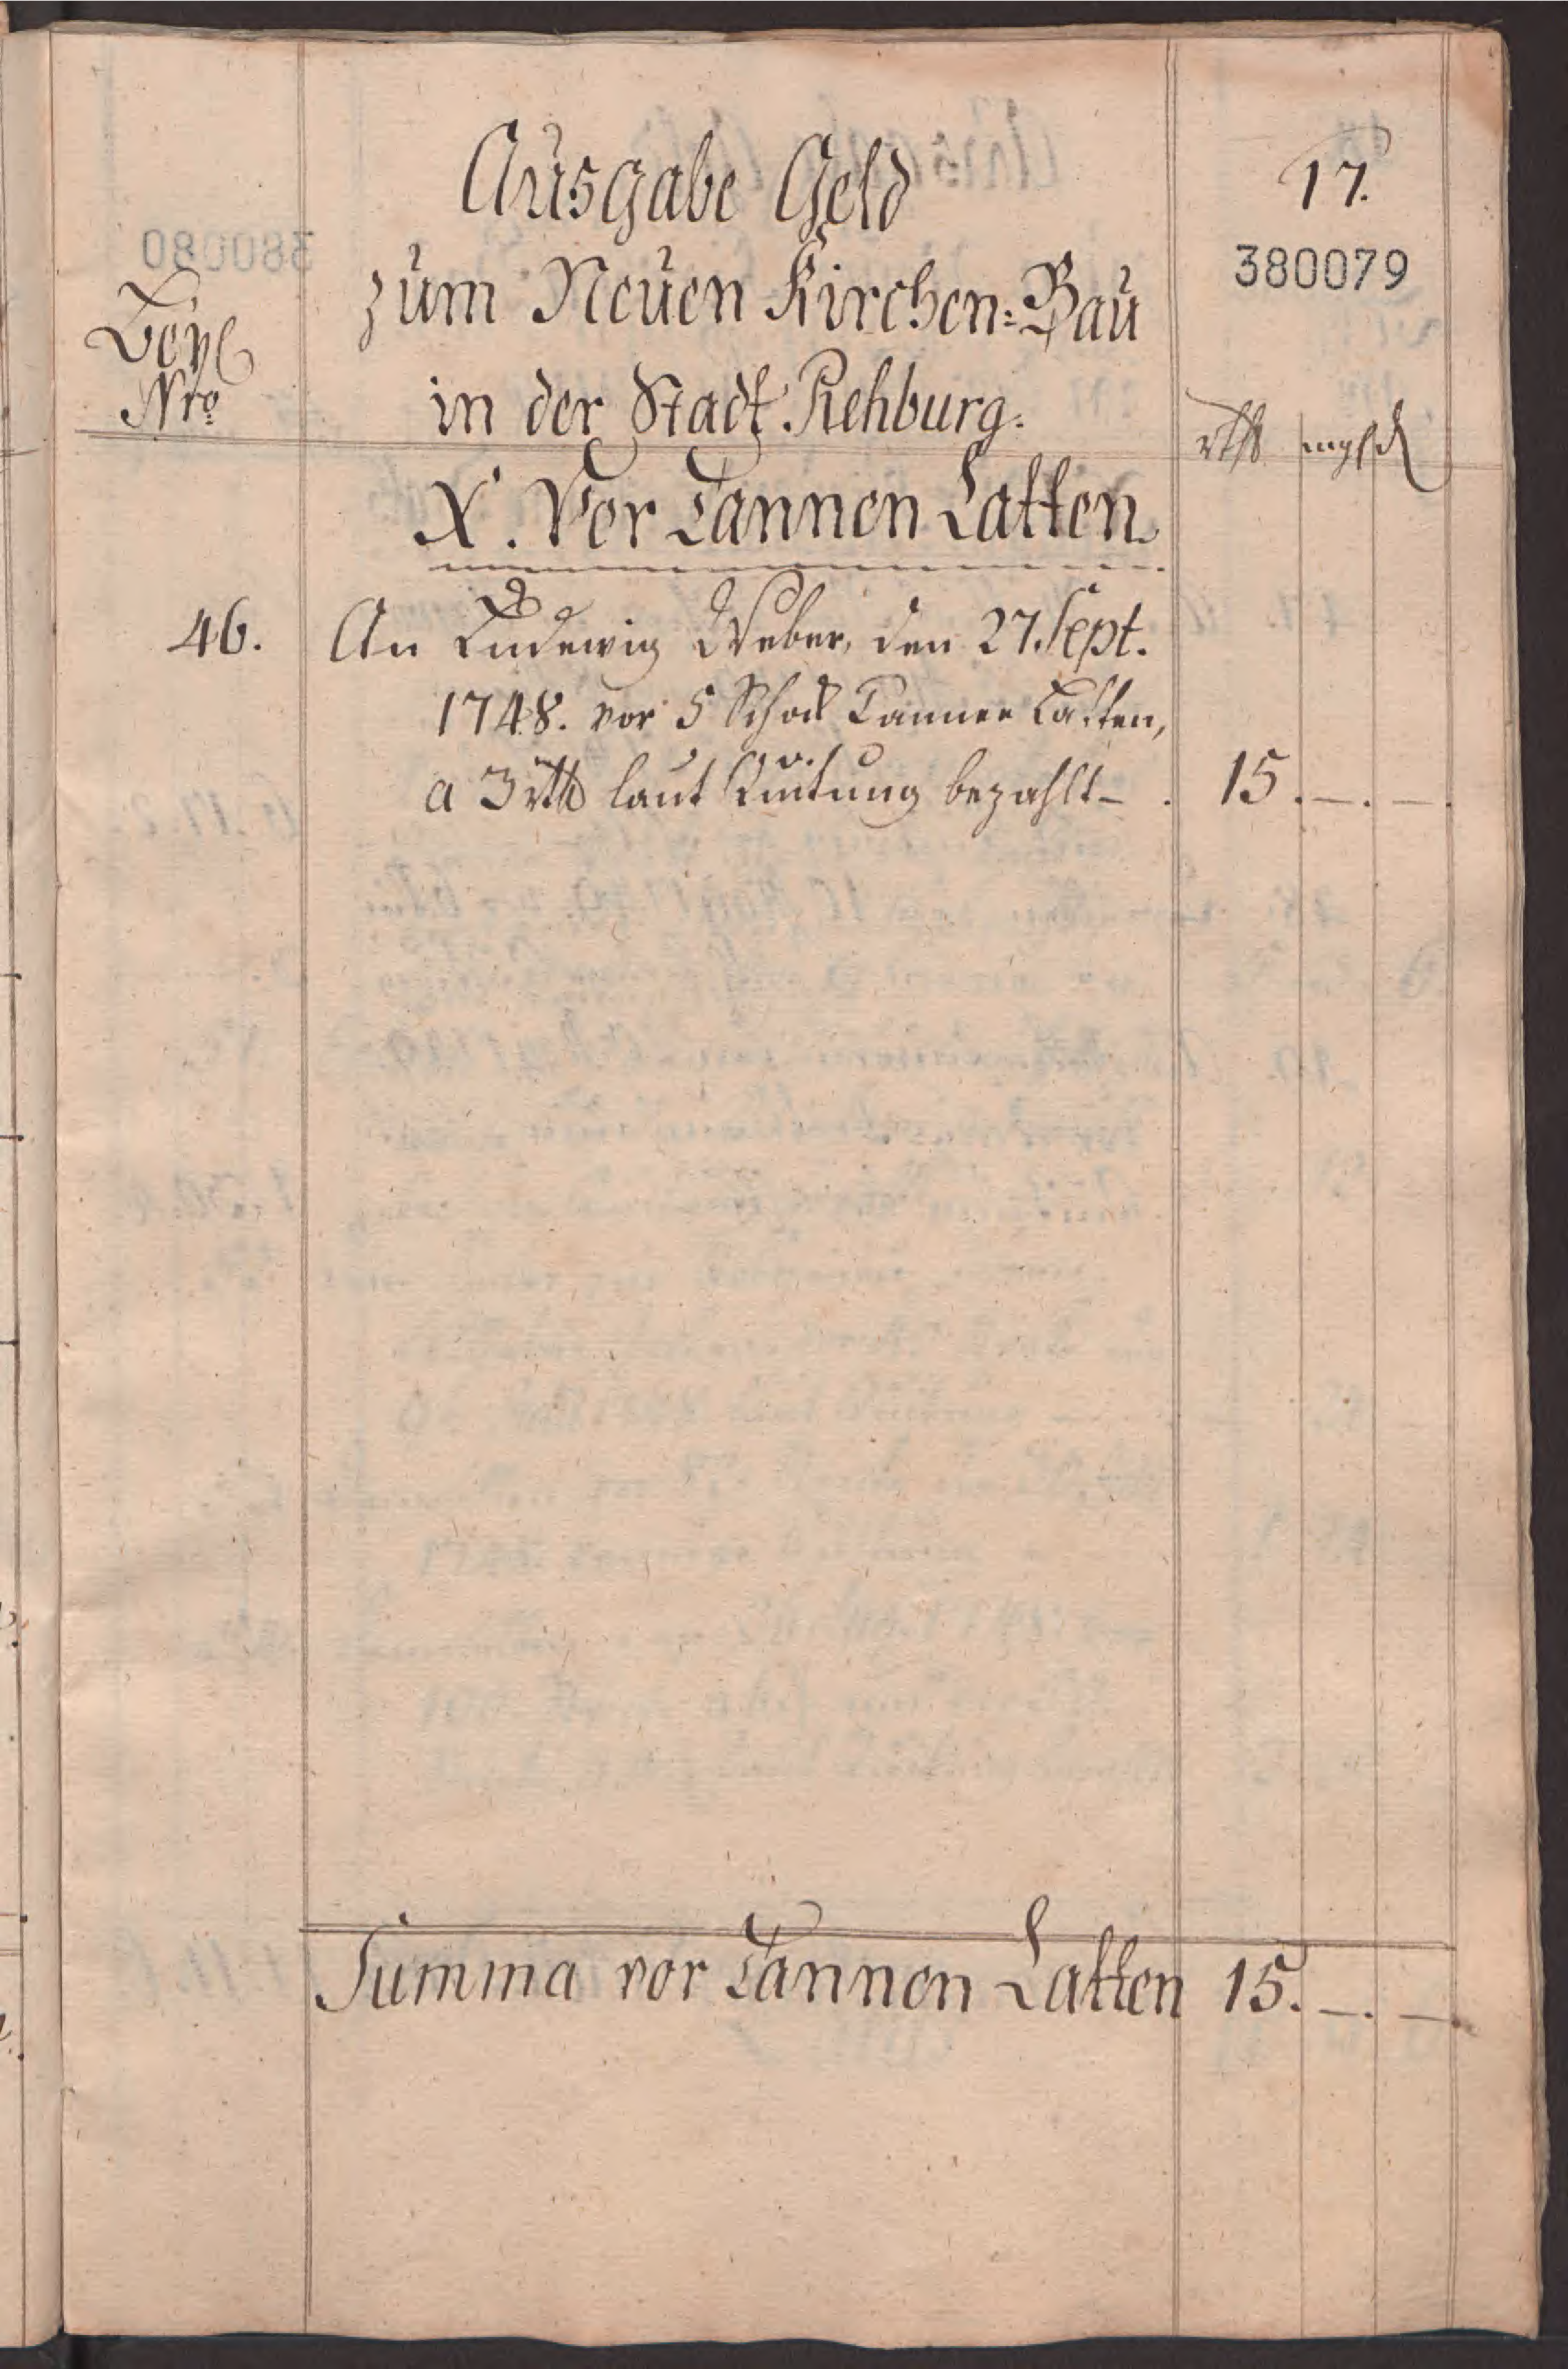 17.
380079
Ausgabe Geld
zum Neuen Kirchen-Bau
in der Stadt Rehburg.
Beyl
Nro
rthl mgl d
X. Vor Tannen Latten
46. An Ludewig Weber, den 27. Sept.
1748. vor 5 Schock Tannen Latten,
a 3 rthl laut Quitung bezahlt - . 15. -. -.
Summa vor Tannen Latten 15. -. -.